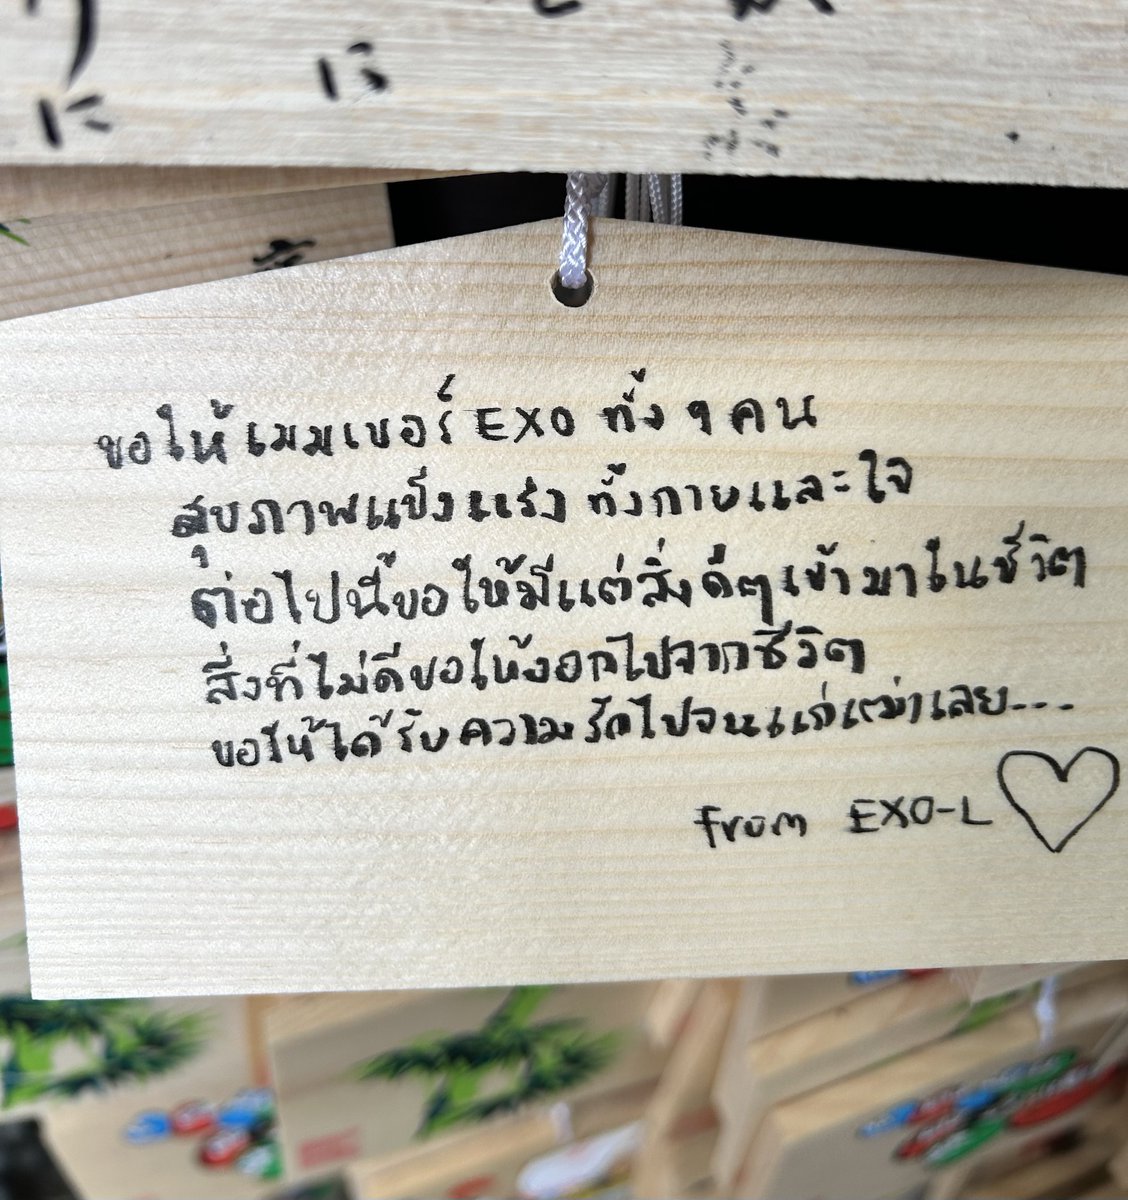 に
に
ขอให้เมมเบอร์ EXO ทั้ง 9 คน
สุขภาพแข็งแรง ทั้งกายและใจ
ต่อไปนี้ขอให้มีแต่สิ่งดีๆเข้ามาในชีวิต
สิ่งที่ไม่ดีขอให้ออกไปจากชีวิต
ขอให้ได้รับความรักไปจนแก่เฒ่าเลย...
from EXO-L